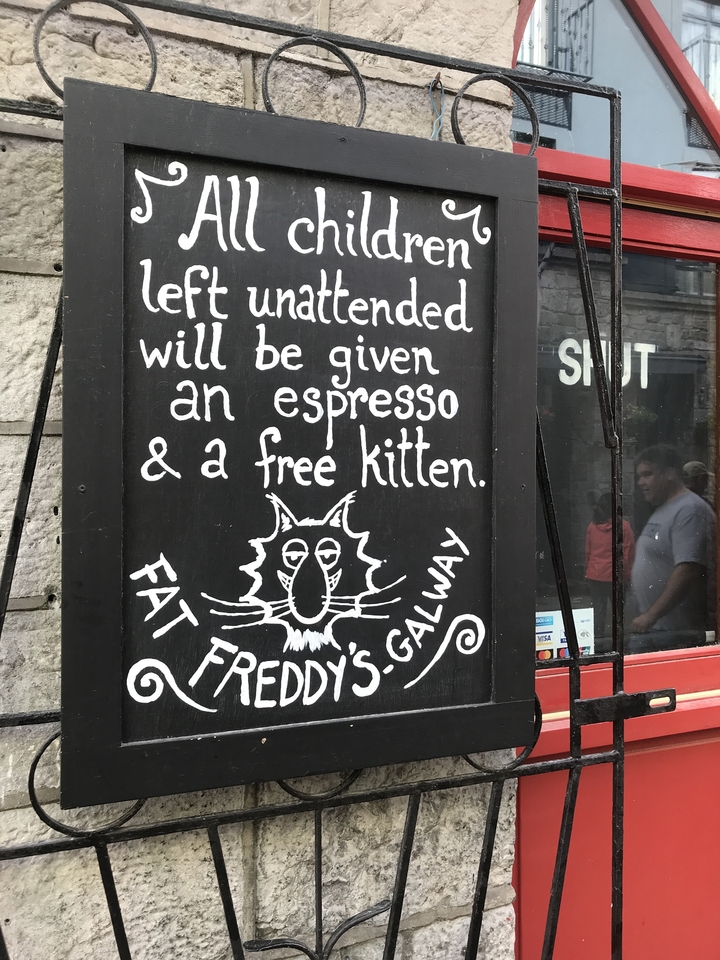 All children
left unattended
will be given
an espresso
& a free kitten.
FAT FREDDY'S-GALWAY
SHUT
VISA